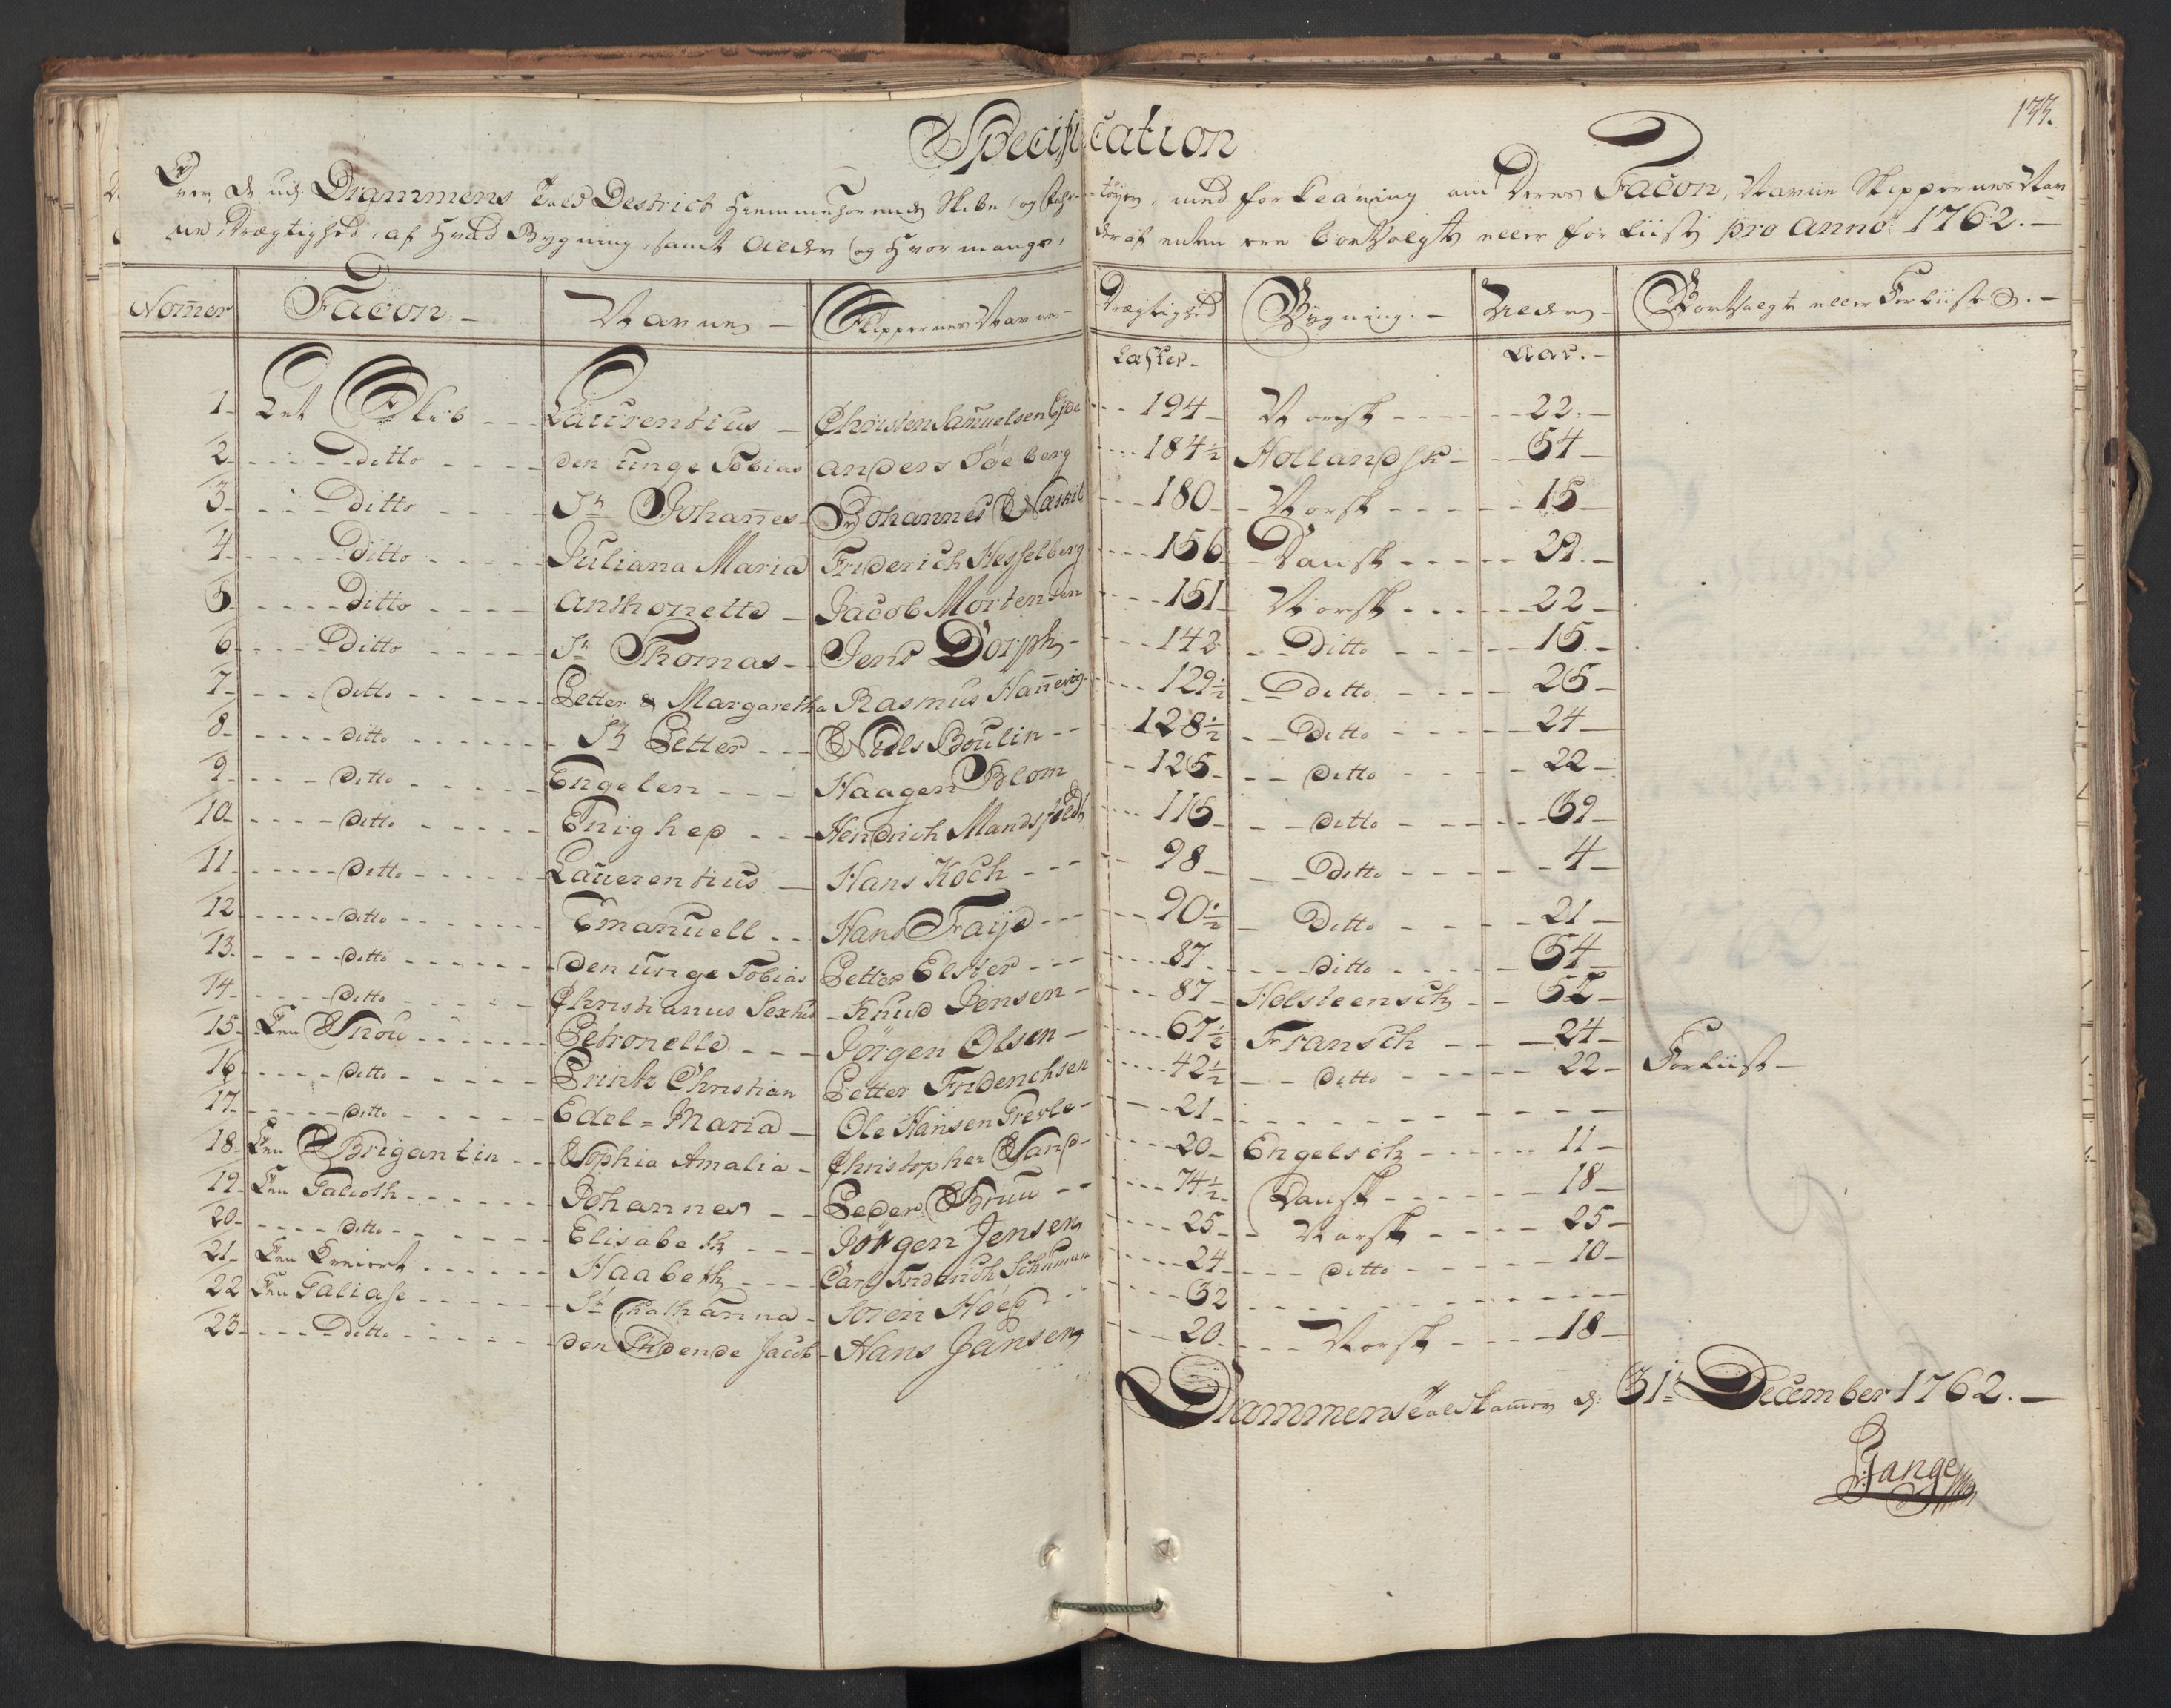 177.
Specification
Over de udj Drammens Told District Hiemmehørende Skibe og Fahrtöyer, med forklaring om Deres Facon, Navne Skippernes Nav
ne, Drægtighed, af Hvad Bygning, samt Alder og Hvor mange, deraf enten ere bortsolgte eller forliiste pro Anno: 1762.—
Nomer Facon.— Navne— Skippernes Navne— Drægtighed Bygning.— Alder— Bortsolgte eller Forliiste.—
Læster— Aar.—
1 Eet Skib Laurentius Christen Samuelsen Eyde 194 Norsk 22
2 ditto den unge Tobias Anders Søeberg 184½ Hollandsk 54
3 Ditto St Johañes Johannes Næskil 180 Norsk 15
4 Ditto Juliana Maria Friderich Hesselberg 156 Dansk 29
5 Ditto Anthonette Jacob Mortensen 151 Norsk 22
6 Ditto St Thomas Jens Dorph 142 Ditto 15
7 ditto Petter & Margaretha Rasmus Hañevig 129½ Ditto 25
8 ditto St Petter Niels Boulin 128½ Ditto 24
9 ditto Engelen Haagen Blom 125 ditto 22
10 ditto Enighed Hendrich Mandsfeldt 115 ditto 39
11 ditto Lauerentius Hans Koch 98 Ditto 4
12 ditto Emanuell Hans Faije 90½ Ditto 21
13 ditto den unge Tobias Petter Elster 87 ditto 54
14 ditto Christianus Sextus Knud Jensen 87 Holsteensch 52
15 Een Snow Petronelle Jörgen Olsen 67½ Fransch 24
16 ditto Printz Christian Petter Friderichsen 42½ ditto 22 Forliist
17 ditto Edel=Maria Ole Hansen 21
18 Een Brigantin Sophia Amalia Christopher Sand 20 Engelsch 11
19 Een Galioth Johannes Peder Bruu 74½ Dansk 18
20 ditto Elisabeth Jörgen Jensen 25 Norsk 25
21 Een Kreiert Haabeth Carl Friderich Schuman 24 ditto 10
22 Een Galiase St Catharina Sören Höeg 32
23 Ditto den Ridende Jacob Hans Jansen 20 Norsk 18
Drammens Toldkamer d: 31te December 1762.—